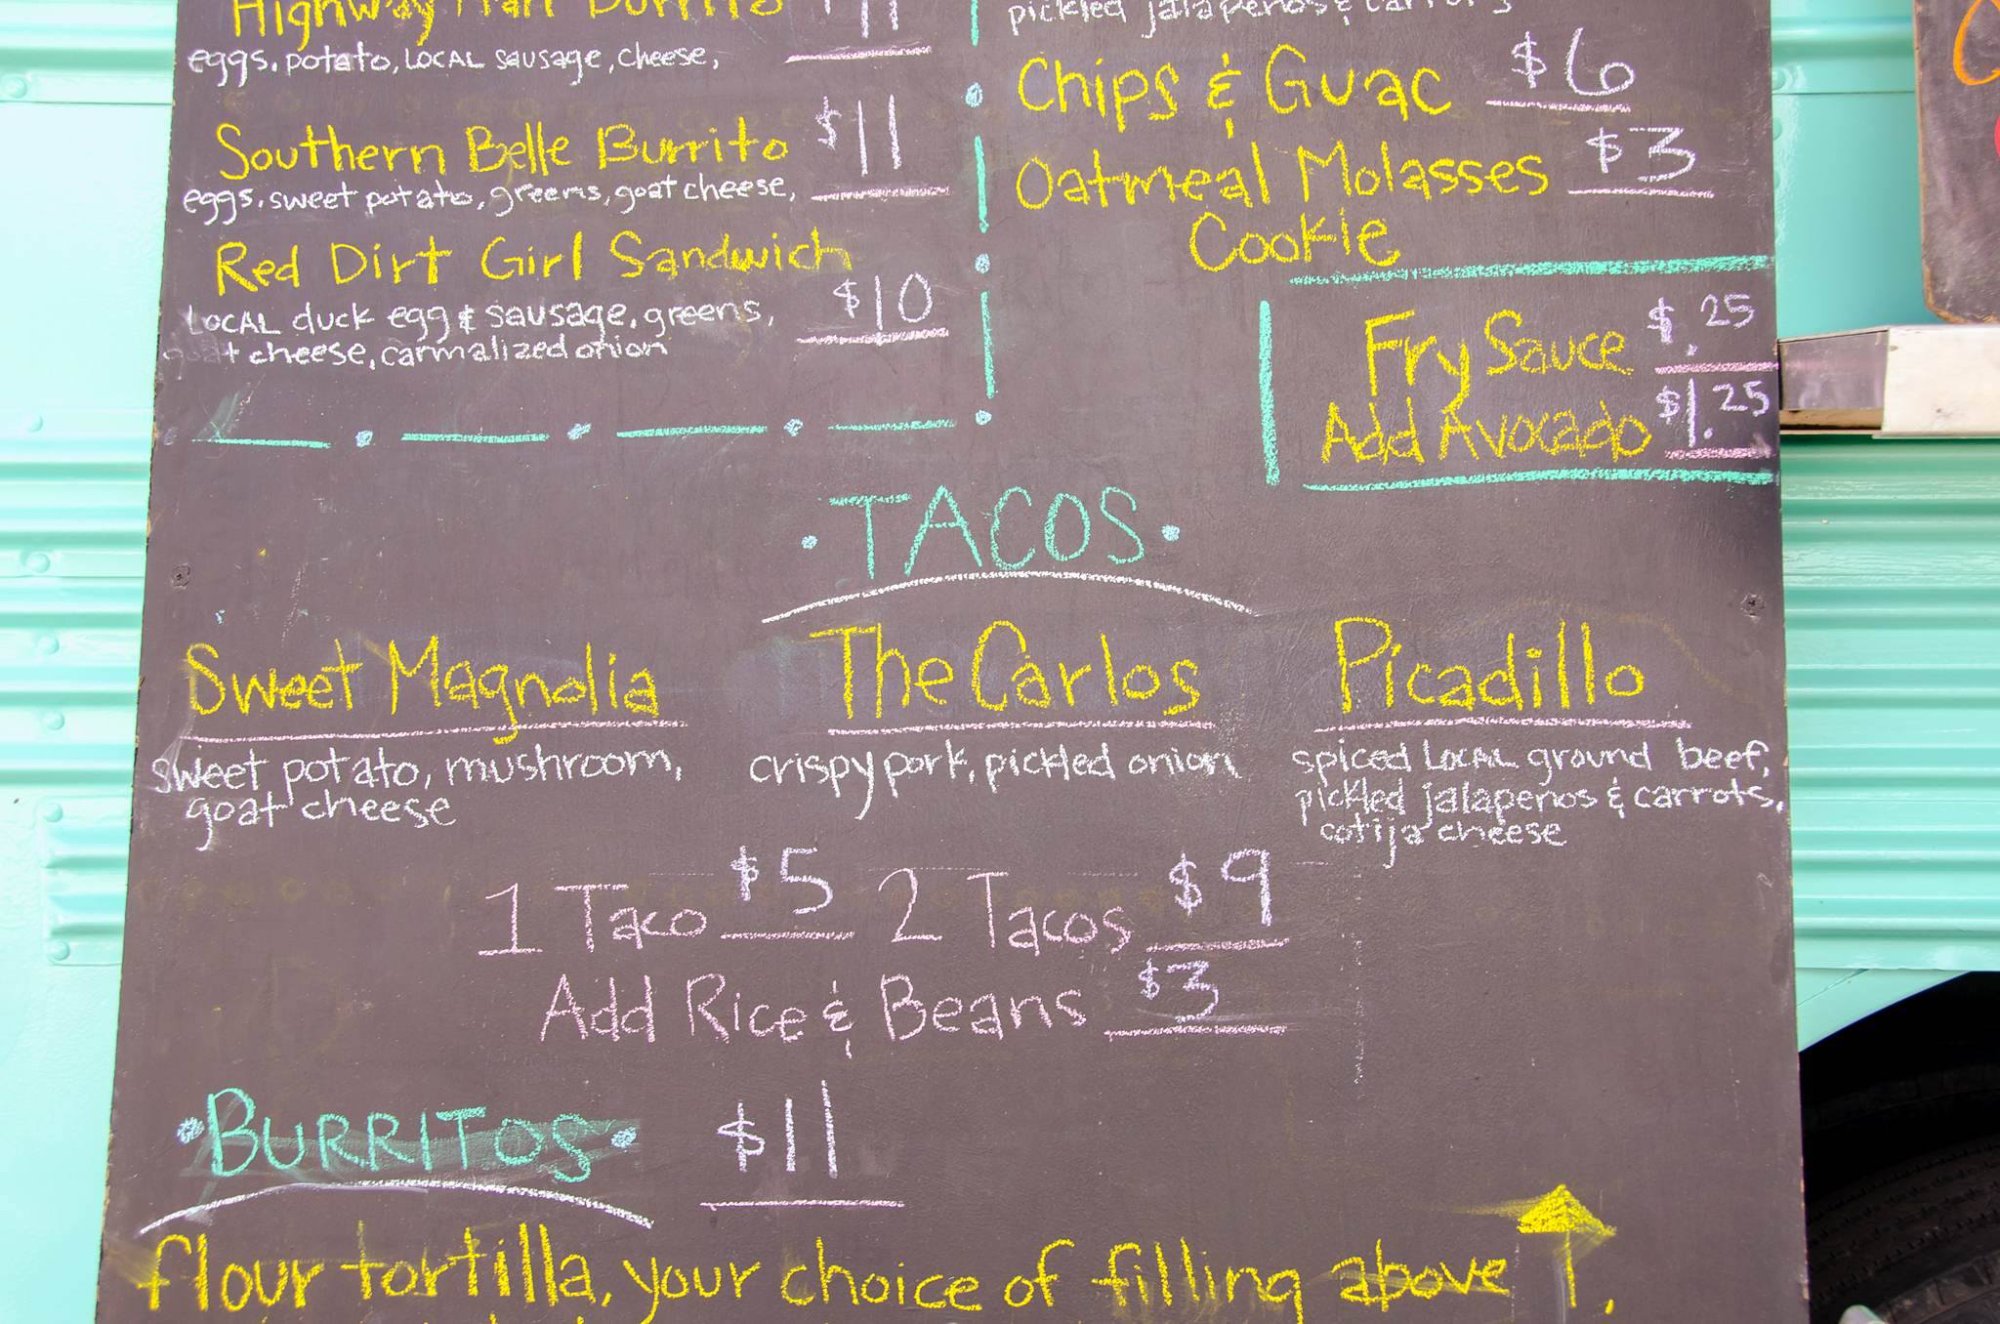 Highway Man Burrito $11
eggs, potato, LOCAL sausage, cheese,
Southern Belle Burrito $11
eggs, sweet potato, greens, goat cheese,
Red Dirt Girl Sandwich
LOCAL duck egg & sausage, greens, $10
goat cheese, carmalized onion
pickled jalapenos & carrots
Chips & Guac $6
Oatmeal Molasses $3
Cookie
Fry Sauce $.25
Add Avocado $1.25
·TACOS·
Sweet Magnolia
sweet potato, mushroom,
goat cheese
The Carlos
crispy pork, pickled onion
Picadillo
spiced LOCAL ground beef,
pickled jalapenos & carrots,
cotija cheese
1 Taco $5 2 Tacos $9
Add Rice & Beans $3
·BURRITOS· $11
flour tortilla, your choice of filling above ↑,